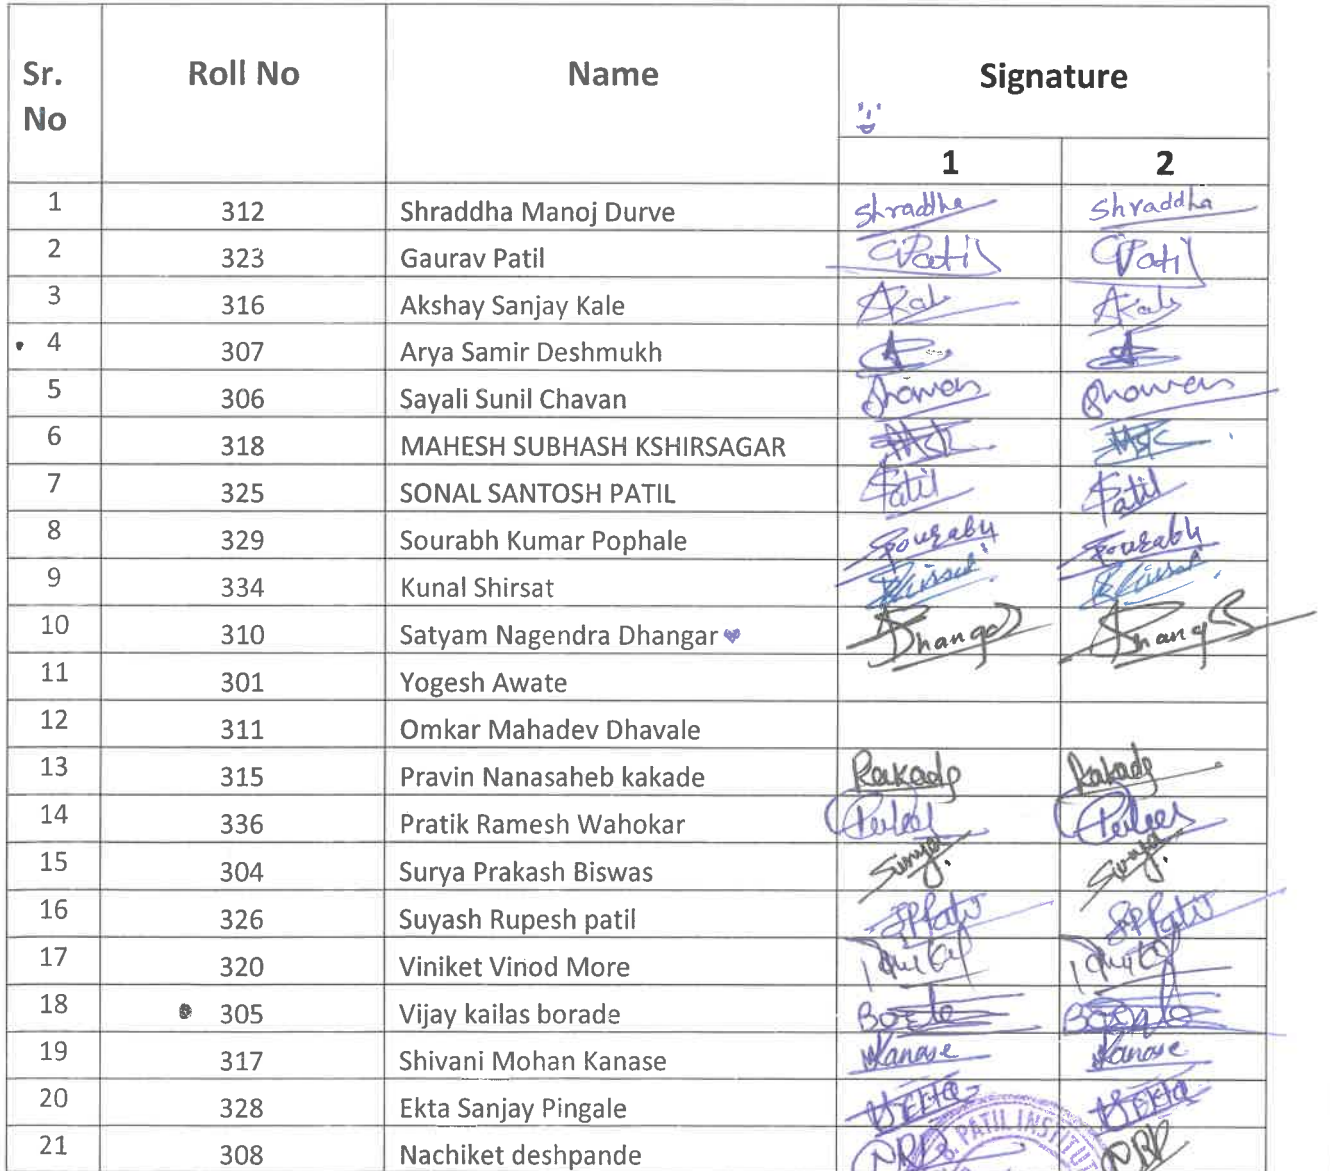 Sr. No Roll No Name Signature
1 2
1 312 Shraddha Manoj Durve Shraddha Shraddha
2 323 Gaurav Patil GPatil GPatil
3 316 Akshay Sanjay Kale
4 307 Arya Samir Deshmukh
5 306 Sayali Sunil Chavan
6 318 MAHESH SUBHASH KSHIRSAGAR
7 325 SONAL SANTOSH PATIL Patil Patil
8 329 Sourabh Kumar Pophale Sourabh Sourabh
9 334 Kunal Shirsat
10 310 Satyam Nagendra Dhangar
11 301 Yogesh Awate
12 311 Omkar Mahadev Dhavale
13 315 Pravin Nanasaheb kakade
14 336 Pratik Ramesh Wahokar
15 304 Surya Prakash Biswas Surya Surya
16 326 Suyash Rupesh patil
17 320 Viniket Vinod More
18 305 Vijay kailas borade
19 317 Shivani Mohan Kanase Kanase Kanase
20 328 Ekta Sanjay Pingale
21 308 Nachiket deshpande
PATIL